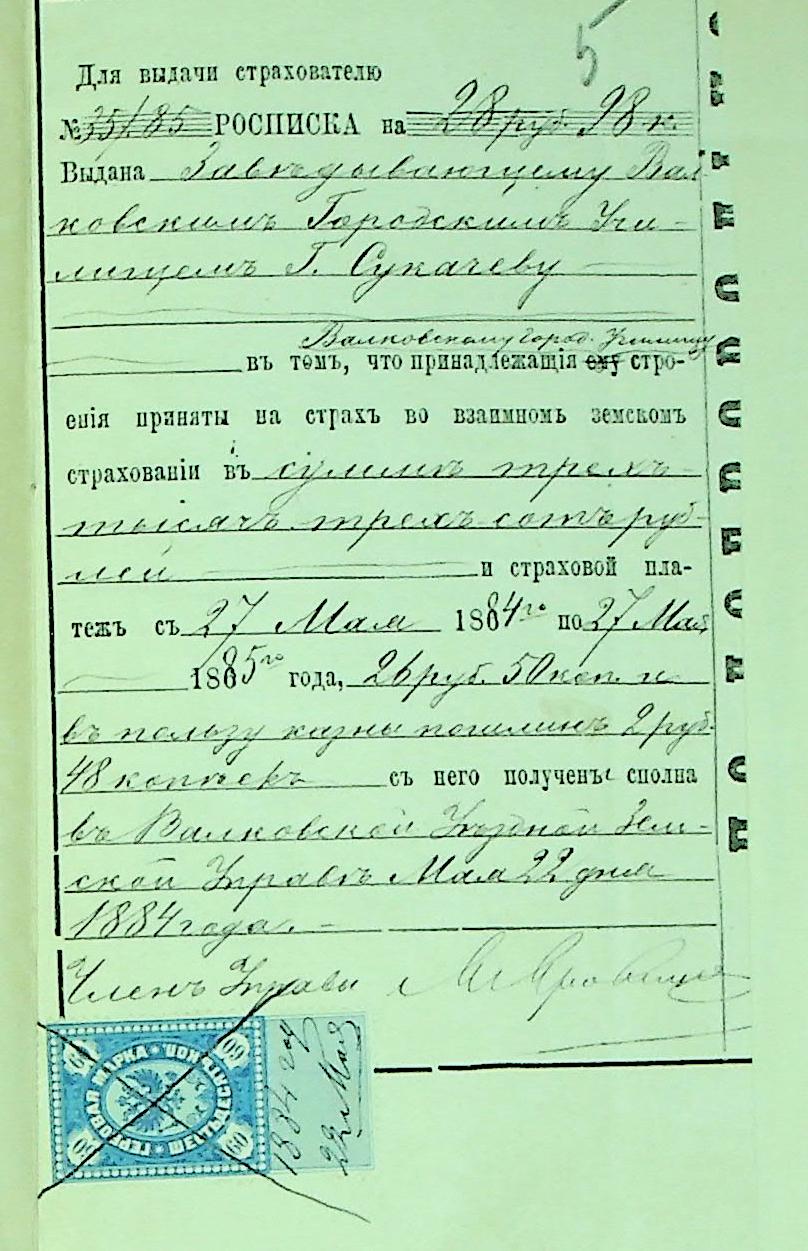 5
Для выдачи страхователю
№ 35/85 РОСПИСКА на 28 руб. 98 к.
Выдана Завѣдывающему Вал-
ковскимъ Городскимъ Учи-
лищемъ Г. Сукачеву
Валковскому город. Училищу
въ томъ, что принадлежащія ему стро-
енія приняты на страхъ во взаимномъ земскомъ
страхованіи въ суммѣ трехъ
тысячъ трехъ сотъ руб-
лей и страховой пла-
тежъ съ 27 Мая 1884го по 27 Мая
1885го года, 26 руб. 50 коп. и
въ пользу казны пошлинъ 2 руб.
48 копѣекъ съ него получены сполна
въ Валковской Уѣздной Зем-
ской Управѣ Мая 22 дня
1884 года.
Членъ Управы
ГЕРБОВАЯ МАРКА * ШЕСТЬДЕСЯТЪ КОП. *
60
60
60
60
1884 год
22 Мая